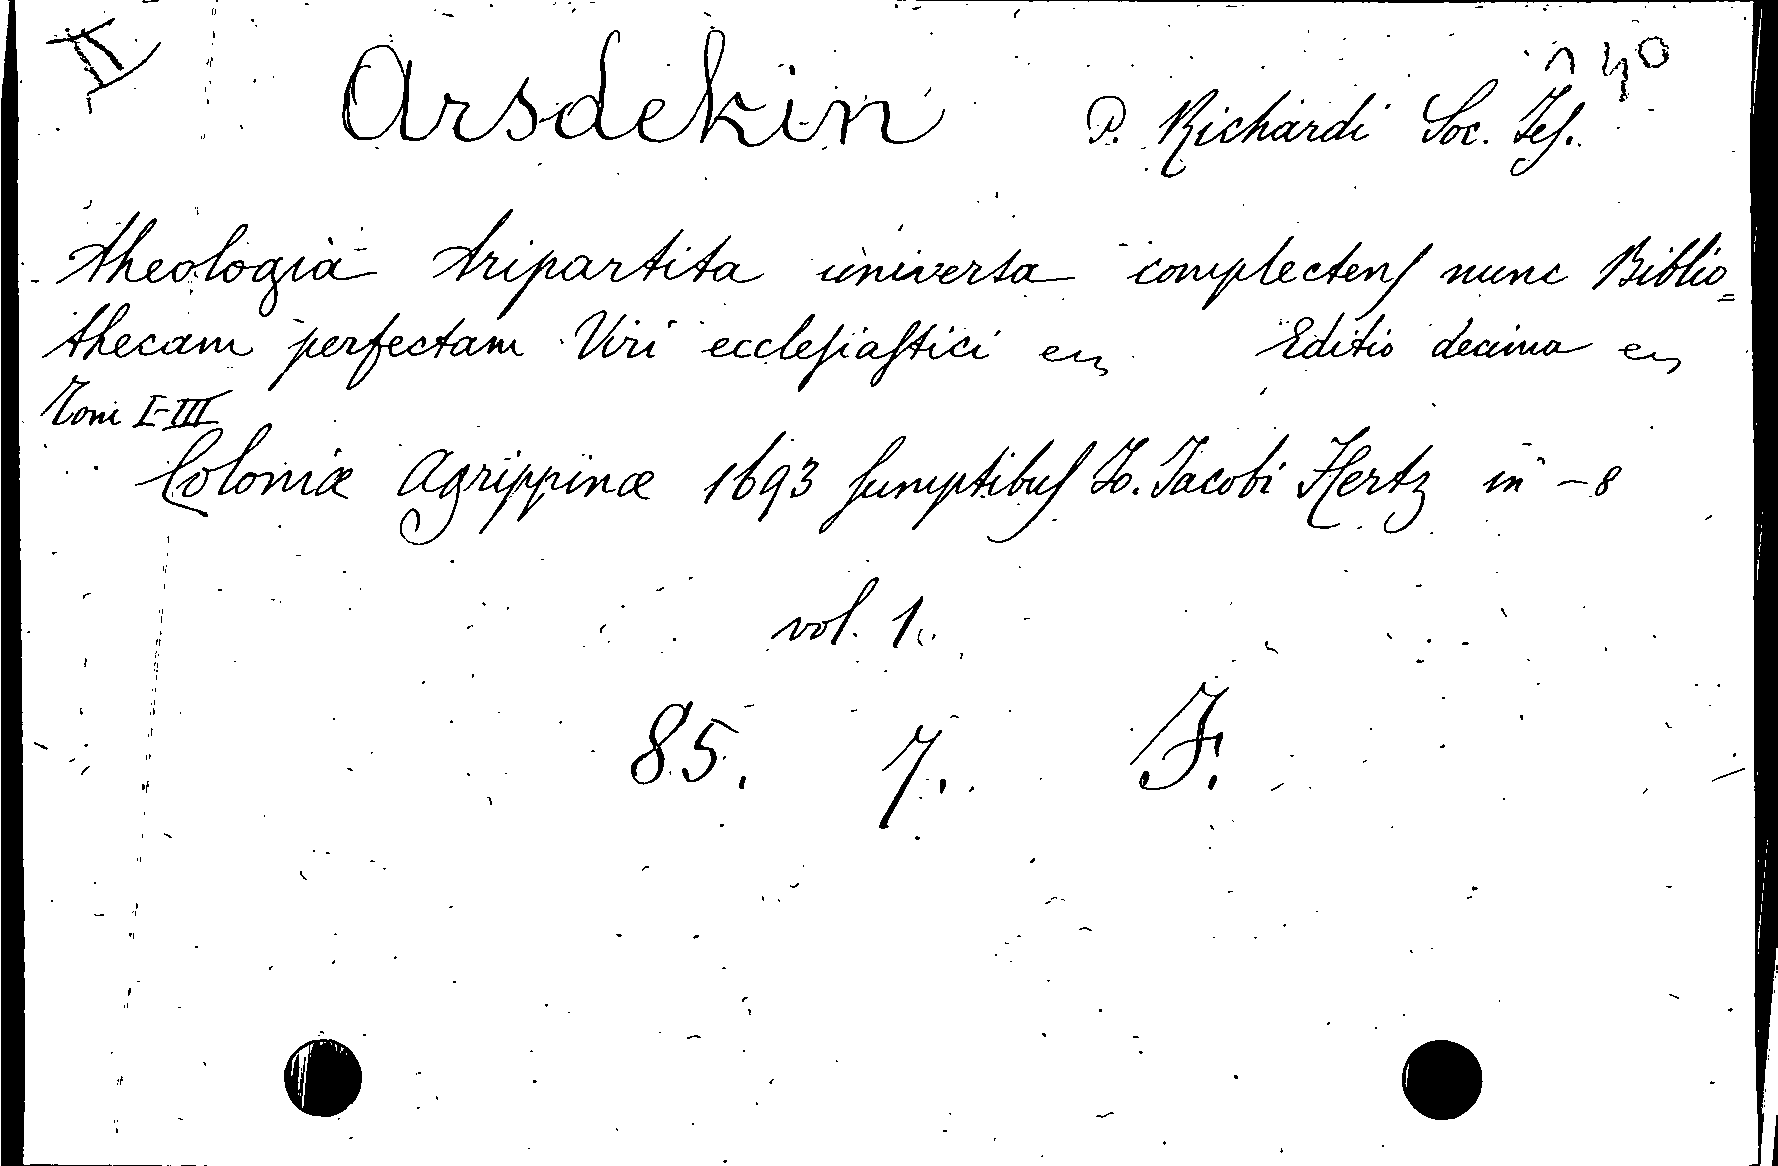 II
Arsdekin P. Richardi Soc. Jeſ.
theologia tripartita universa complectenſ nunc Biblio=
thecam perfectam Viri eccleſiaſtici Editio decima
Tomi I-III
Coloniæ Agrippinæ 1693 ſumptibuſ Jo. Jacobi Hertz in -8
vol. 1.
85. 7. J.